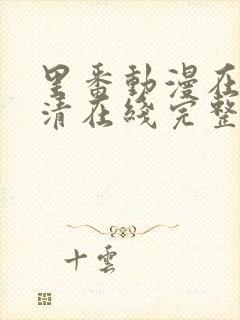 里番動漫在
清在綫完整
十雲